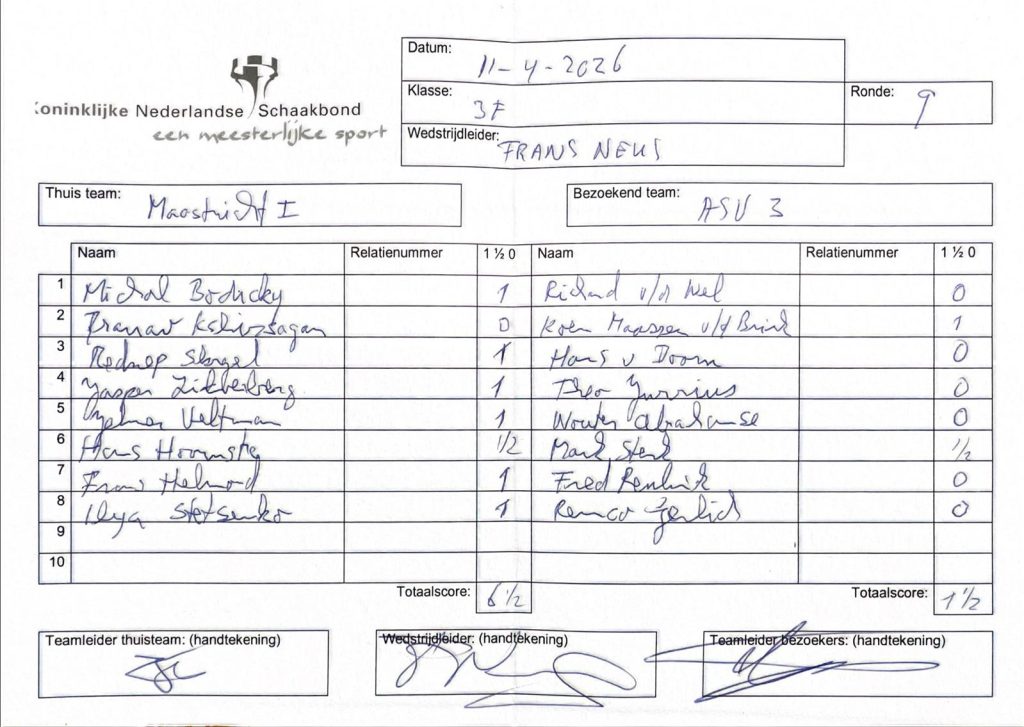 Datum: 11-4-2026
Koninklijke Nederlandse Schaakbond
een meesterlijke sport
Klasse: 3F
Ronde: 9
Wedstrijdleider: FRANS NEUS
Thuis team: Maastricht I
Bezoekend team: ASV 3
Naam Relatienummer 1 ½ 0 Naam Relatienummer 1 ½ 0
1 Michal 1 Richard v/d Wel 0
2 Pranav 0 Koen Maassen v/d Brink 1
3 1 Hans v Doorn 0
4 Jasper 1 Theo Jurrius 0
5 Veltman 1 Wouter Abrahamse 0
6 Hans 1/2 Mark Sterk 1/2
7 Frans Helmond 1 Fred Reulink 0
8 Ilya Stetsenko 1 Remco Gerlich 0
9
10
Totaalscore: 6 1/2 Totaalscore: 1 1/2
Teamleider thuisteam: (handtekening) Wedstrijdleider: (handtekening) Teamleider bezoekers: (handtekening)